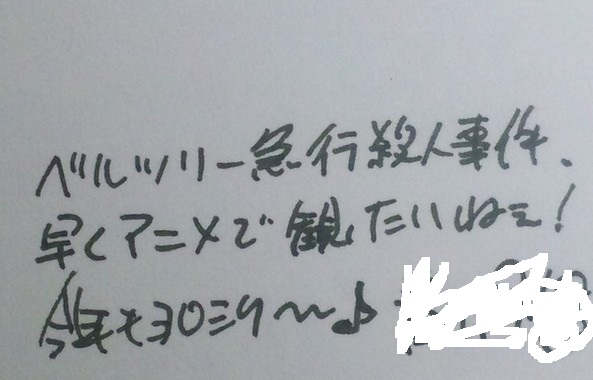 ベルツリー急行殺人事件、
早くアニメで観たいねェ!
今年もヨロシク〜♪